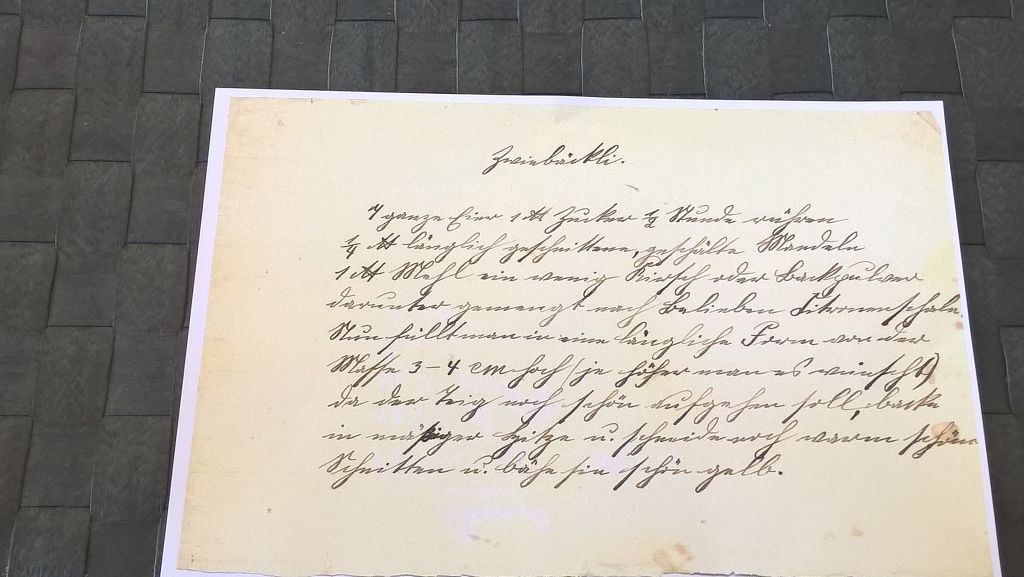 Zwiebäckli.
7 ganze Eier 1 ℔ Zucker ½ Stunde rühren
¼ ℔ länglich geschnittene, geschälte Mandeln
1 ℔ Mehl ein wenig Kirsch oder Backpulver
darunter gemengt nach Belieben Citronenschale.
Nun füllt man in eine längliche Form von der
Masse 3 – 4 cm hoch (je höher man es wünscht)
da der Teig noch schön aufgehen soll, backe
in mäßiger Hitze u. schneide noch warm schöne
Schnitten u. bähe sie schön gelb.